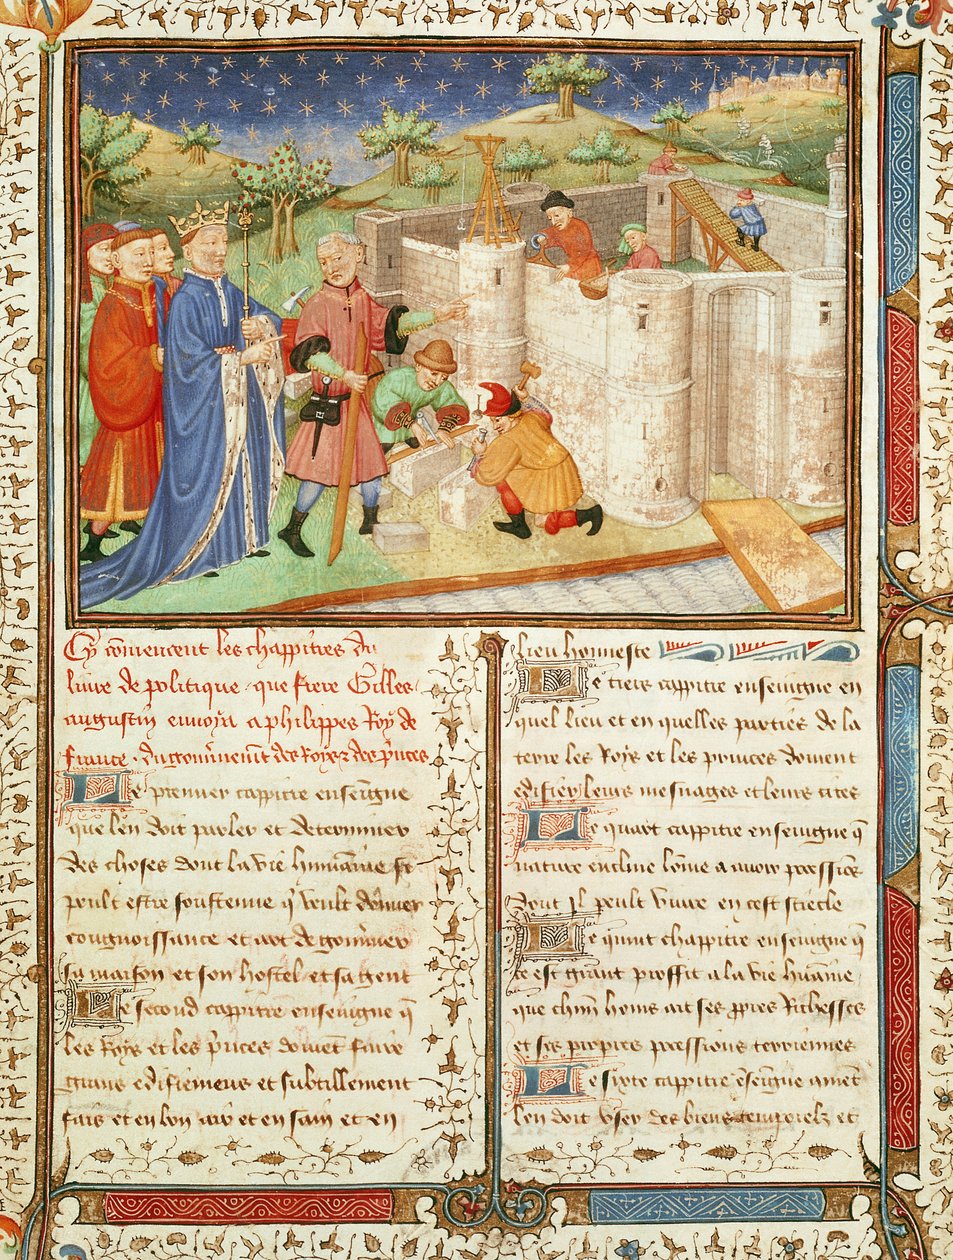 Cy cōmencent les chappitres du
livre de politique . que frere Gilles
augustin envoya a phelippes Roy de
france . du gouvernemēt des Roys et des princes
Le premier cappitre enseigne
que len doit parler et determiner
des choses dont la vie humaine se
peult estre soustenue q̄ veult donner
congnoissance et art de gouverner
sa maison et son hostel et sa gent
Le second cappitre enseigne q̄
les Roys et les princes doivēt faire
grans edifiemens et subtillement
fais et en bon air et en sain et en
lieu honneste
Le tiers cappitre enseigne en
quel lieu et en quelles parties de la
terre les Roys et les princes doivent
edifier leurs mesnages et leurs cites
Le quart cappitre enseigne q̄
nature encline lōme a avoir possessiōs
dont il peult vivre en cest siecle
Le quint chappitre enseigne q̄
ce est grant proffit a la vie humaine
que chūn homs ait ses propres Richesses
et ses propres possessions terriennes
Le sixte cappitre ēseigne cōment
len doit user des biens temporelz et